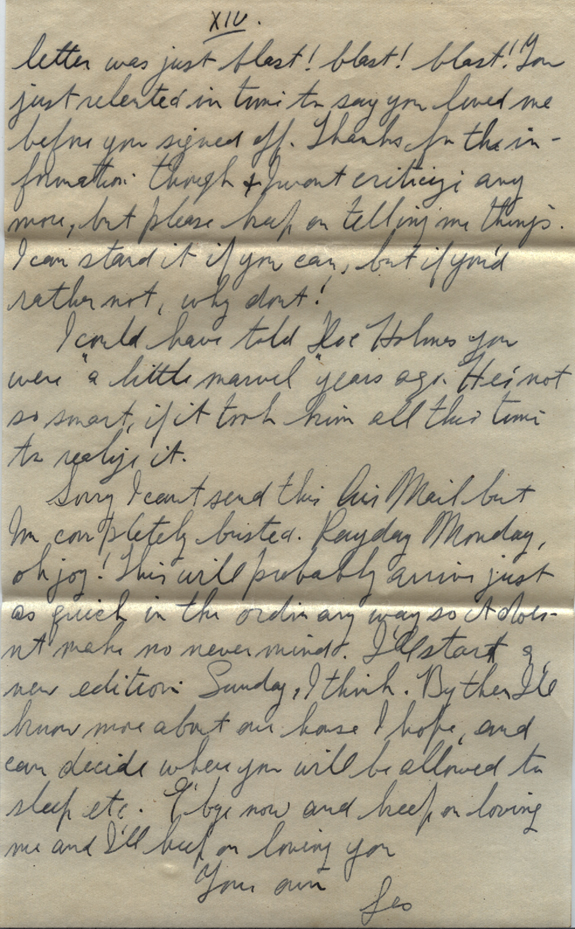 XIV.
letter was just blast! blast! blast! You
just relented in time to say you loved me
before you signed off. Thanks for the in-
formation though & I wont criticize any
more, but please keep on telling me things.
I can stand it if you can, but if you'd
rather not, why dont!
I could have told Doc Holmes you
were "a little marvel" years ago. He's not
so smart, if it took him all this time
to realize it.
Sorry I cant send this Air Mail but
Im completely busted. Payday Monday,
oh joy! This will probably arrive just
as quick in the ordinary way so it does-
nt make no never minds. I'll start a
new edition Sunday, I think. By then I'll
know more about our house I hope, and
can decide where you will be allowed to
sleep etc. G'bye now and keep on loving
me and I'll keep on loving you
Your own
Les